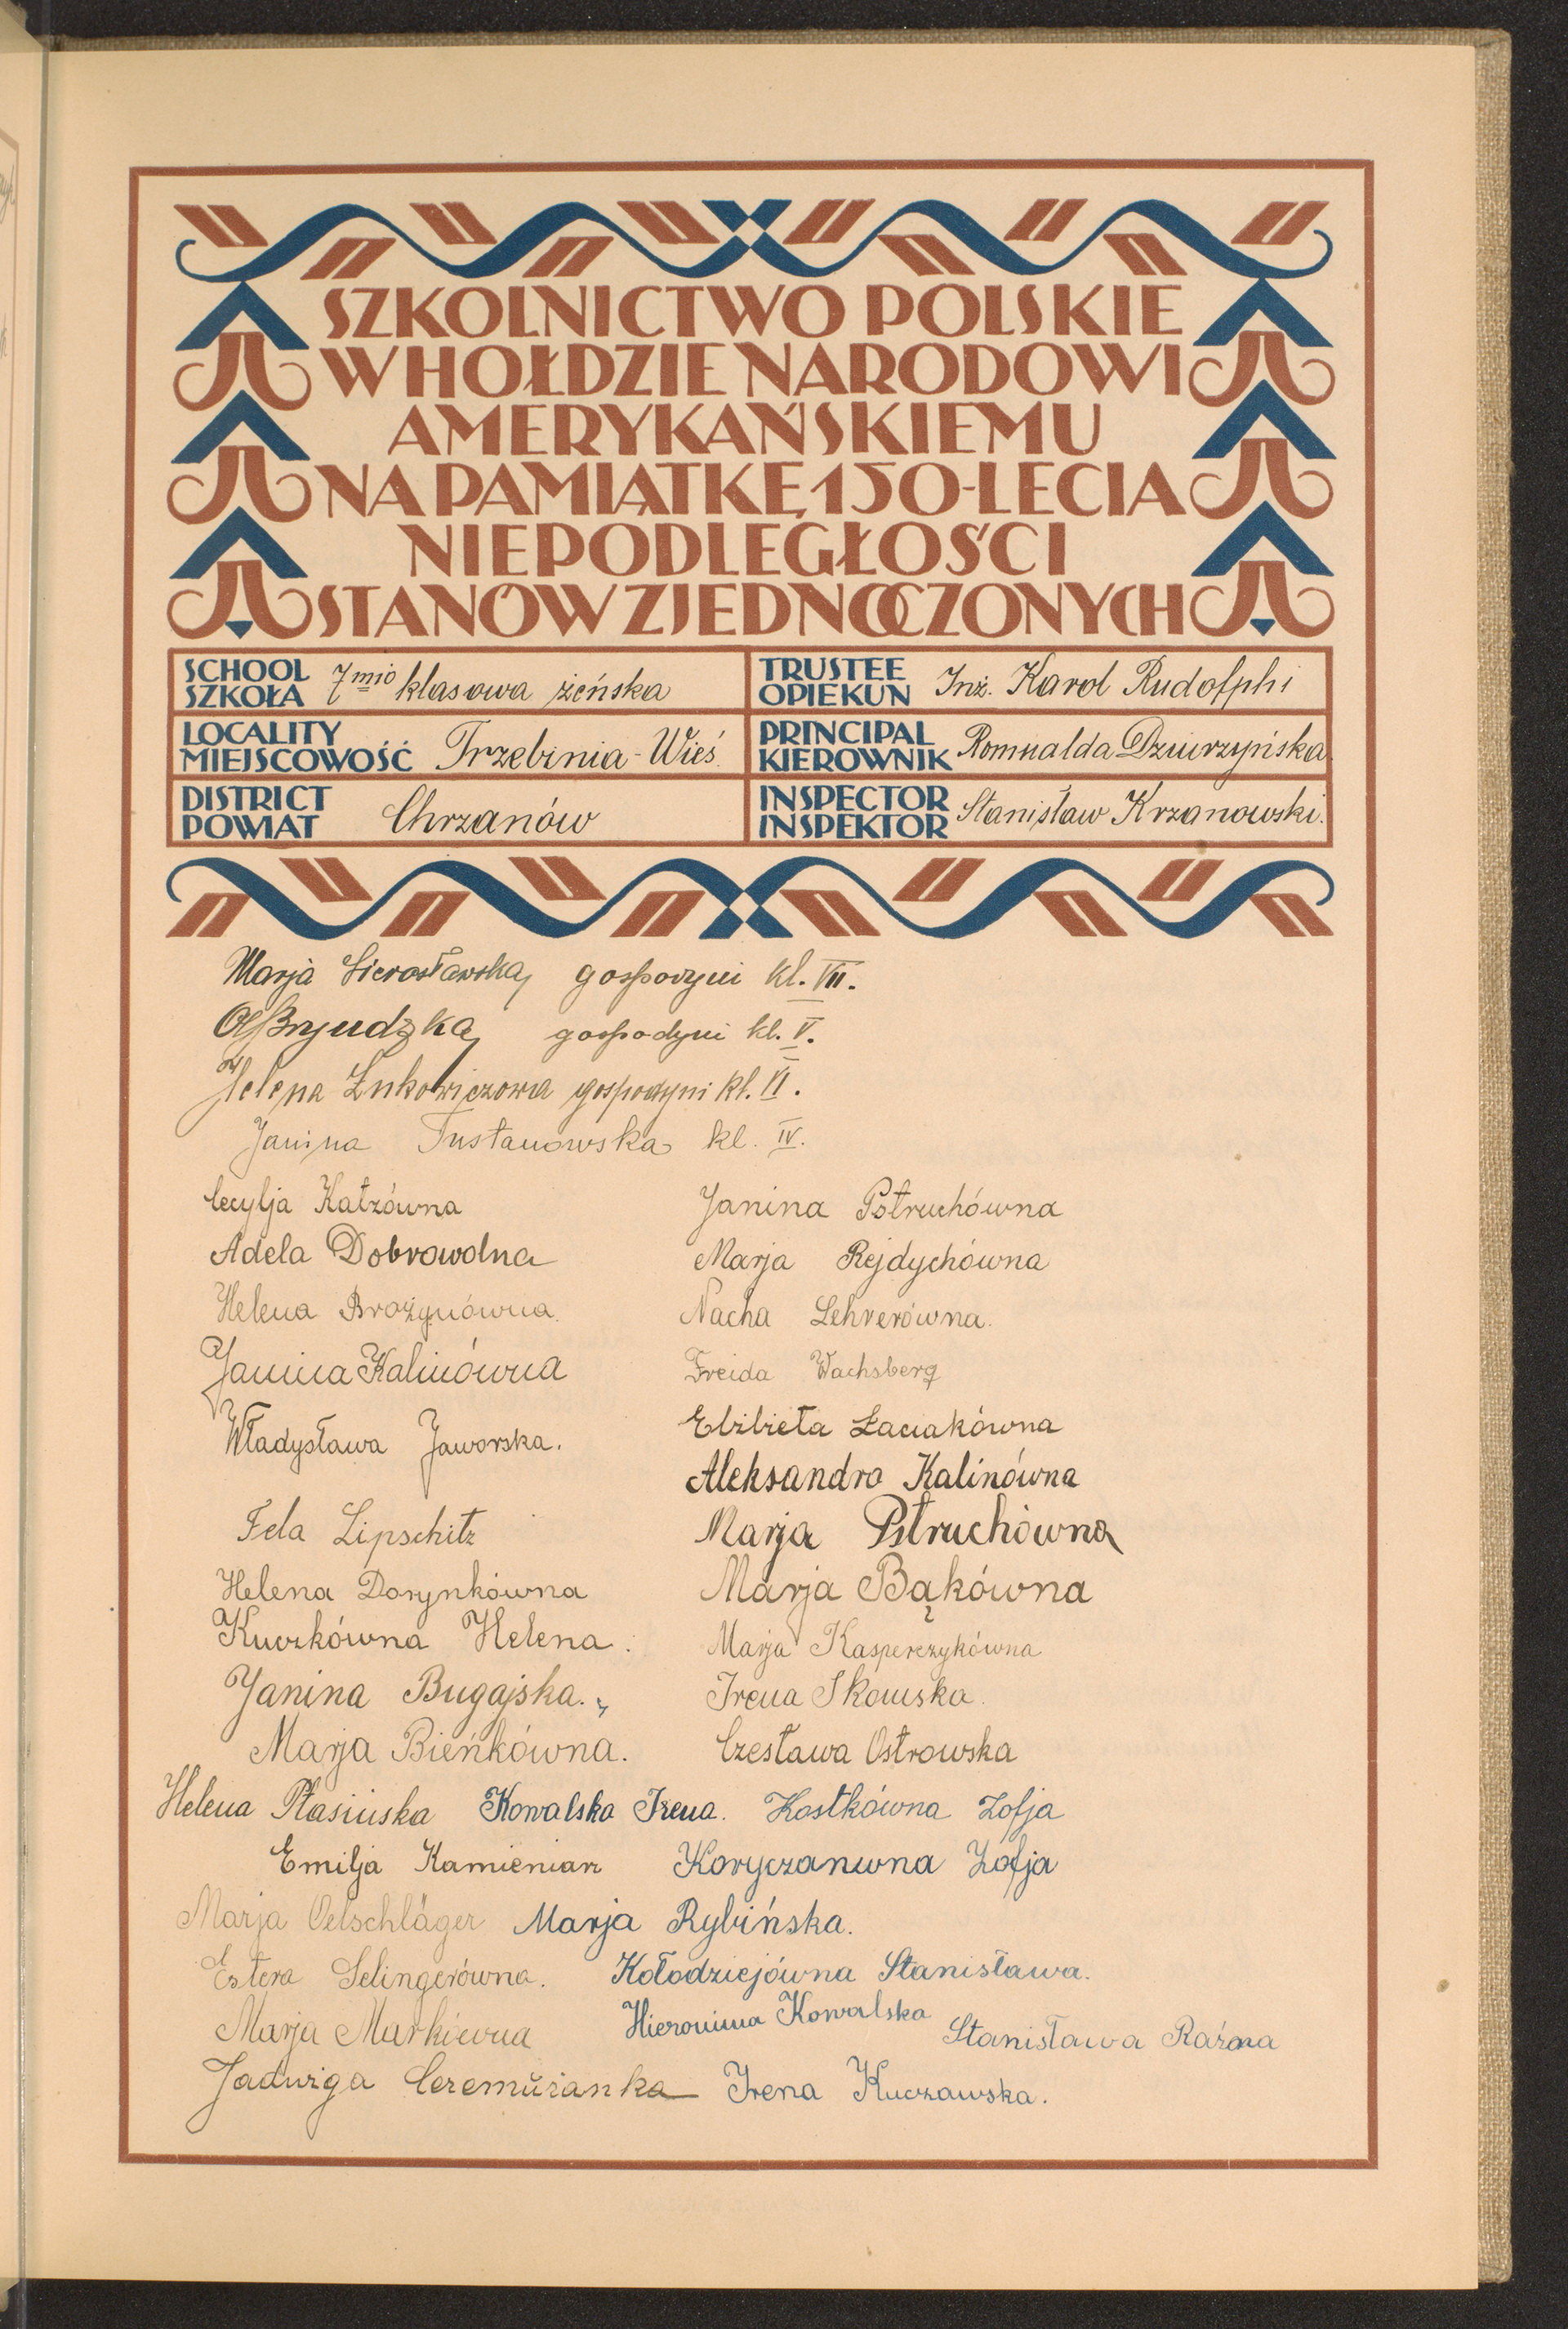 SZKOLNICTWO POLSKIE
W HOŁDZIE NARODOWI
AMERYKAŃSKIEMU
NA PAMIĄTKĘ 150-LECIA
NIEPODLEGŁOŚCI
STANÓW ZJEDNOCZONYCH
SCHOOL
SZKOŁA 7mio klasowa żeńska
TRUSTEE
OPIEKUN Inż. Karol Rudolphi
LOCALITY
MIEJSCOWOŚĆ Trzebinia-Wieś
PRINCIPAL
KIEROWNIK Romualda Dziurzyńska
DISTRICT
POWIAT Chrzanów
INSPECTOR
INSPEKTOR Stanisław Krzanowski.
Marja Sierosławska, gospodyni kl. VII.
gospodyni kl. V.
Helena Łukowiczowa gospodyni kl. VI.
Janina Tustanowska kl. IV.
Cecylja Katzówna
Janina Pstruchówna
Adela Dobrowolna
Marja Rejdychówna
Helena Brożynówna.
Nacha Lehrerówna.
Janina Kalinówna
Freida Wachsberg
Władysława Jaworska.
Elżbieta Łaciakówna
Aleksandra Kalinówna
Fela Lipschitz
Marja Pstruchówna
Helena Dorynkówna
Marja Bąkówna
Kuczkówna Helena.
Marja Kasperczykówna
Janina Bugajska.
Irena Skowska.
Marja Bieńkówna.
Czesława Ostrowska
Helena Ptasińska Kowalska Irena. Kostkówna Zofja
Emilja Kamieniarz Koryczanwna Zofja
Marja Oelschläger Marja Rybińska.
Estera Selingerówna. Kołodziejówna Stanisława.
Marja Markiewna Hieronima Kowalska Stanisława Raźna
Jadwiga Ceremużanka Irena Kuczawska.